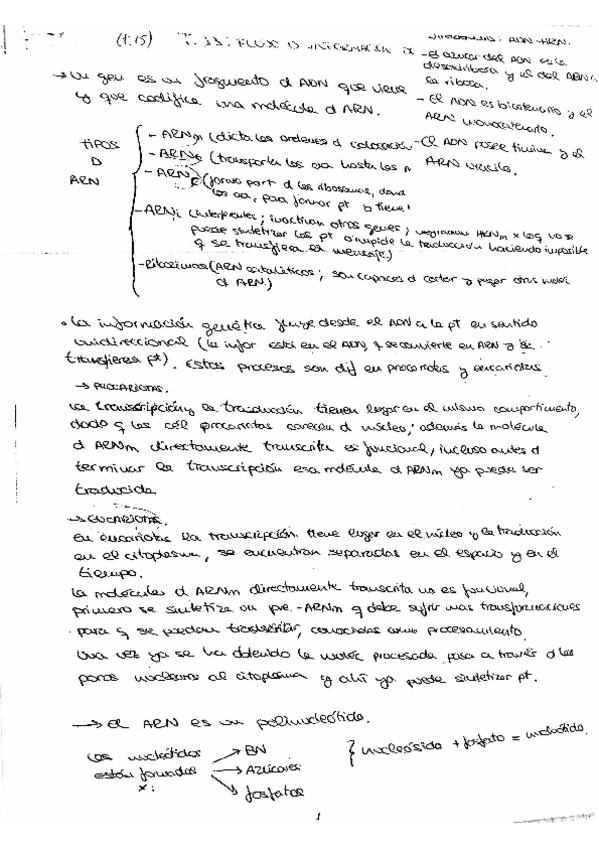 (T.15) T. 13: FLUJO D INFORMACIÓN
ADN - ARN.
- El azúcar del ADN es la
desoxirribosa y el del ARN
la ribosa.
- El ADN es bicatenario y el
ARN monocatenario.
- El ADN posee timina y el
ARN uracilo.
→ Un gen es un fragmento d ADN que viene
y que codifica una molécula d ARN.
TIPOS
D
ARN
- ARNm (dicta las ordenes d colocación
- ARNt (transporta los aa hasta los
- ARNr (forma part d los ribosomas, dond
los aa, para formar pt
- ARNi (interferentes; inactivan otros genes; ARNm x lo q no se
puede sintetizar las pt o impide la traducción haciendo imposible
q se transfiera el mensaje)
- Ribozimas (ARN catalíticos; son capaces d cortar y pegar otras moléc
d ARN.)
• La información genética fluye desde el ADN a la pt en sentido
unidireccional (la infor está en el ADN, + se convierte en ARN y se
transfiere a pt). Estos procesos son dif en procariotas y eucariotas
→ PROCARIOTAS.
La transcripción y la traducción tienen lugar en el mismo compartimento,
dado q las cél procariotas carecen d núcleo; además la molécula
d ARNm directamente transcrita es funcional, incluso antes d
terminar la transcripción esa molécula d ARNm ya puede ser
traducida
→ EUCARIOTAS.
En eucariotas la transcripción tiene lugar en el núcleo y la traducción
en el citoplasma, se encuentran separadas en el espacio y en el
tiempo.
La molécula d ARNm directamente transcrita no es funcional,
primero se sintetiza un pre-ARNm q debe sufrir unas transformaciones
para q se puedan, conocidas como procesamiento.
Una vez ya se ha obtenido la moléc procesada pasa a través d los
poros nucleares al citoplasma y ahí ya puede sintetizar pt.
→ El ARN es un polinucleótido.
Los nucleótidos
están formados
x:
→ BN
→ Azúcares
→ fosfatos
} nucleósido + fosfato = nucleótido.
1